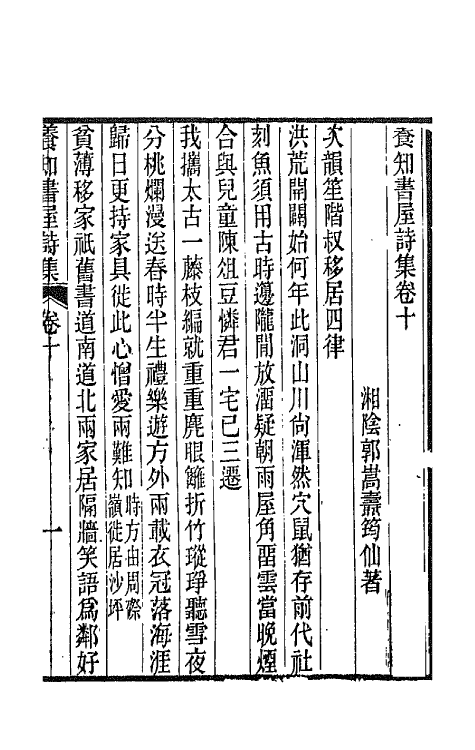 養知書屋詩集卷十
湘陰郭嵩燾筠仙著
次韻笙階叔移居四律
洪荒開闢始何年此洞山川尙渾然穴鼠猶存前代社
刻魚須用古時籩隴間放溜疑朝雨屋角畱雲當晚煙
合與兒童陳俎豆憐君一宅已三遷
我攜太古一藤枝編就重重麂眼籬折竹瑽琤聽雪夜
分桃爛漫送春時半生禮樂遊方外兩載衣冠落海涯
歸日更持家具徙此心憎愛兩難知時方由周磜嶺徙居沙坪
貧薄移家祇舊書道南道北兩家居隔牆笑語爲鄰好
養知書屋詩集
卷十
一